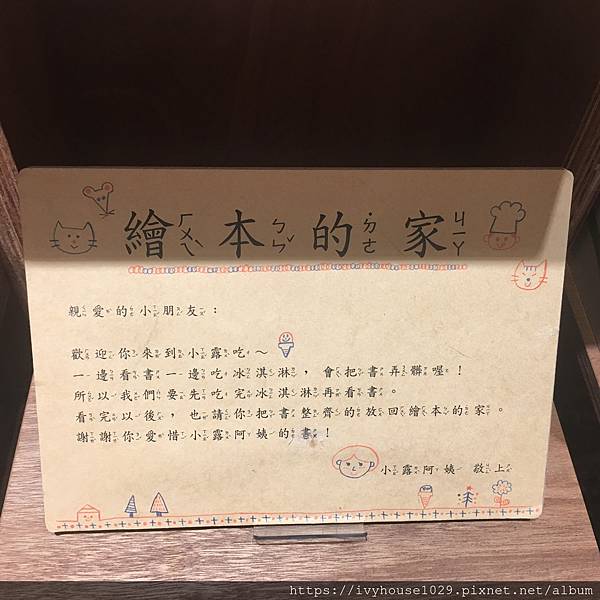 繪本的家
親愛的小朋友：
歡迎你來到小露吃～
一邊看書一邊吃冰淇淋，會把書弄髒喔！
所以我們要先吃完冰淇淋再看書。
看完以後，也請你把書整齊的放回繪本的家。
謝謝你愛惜小露阿姨的書！
小露阿姨 敬上
https://ivyhouse1029.pixnet.net/album